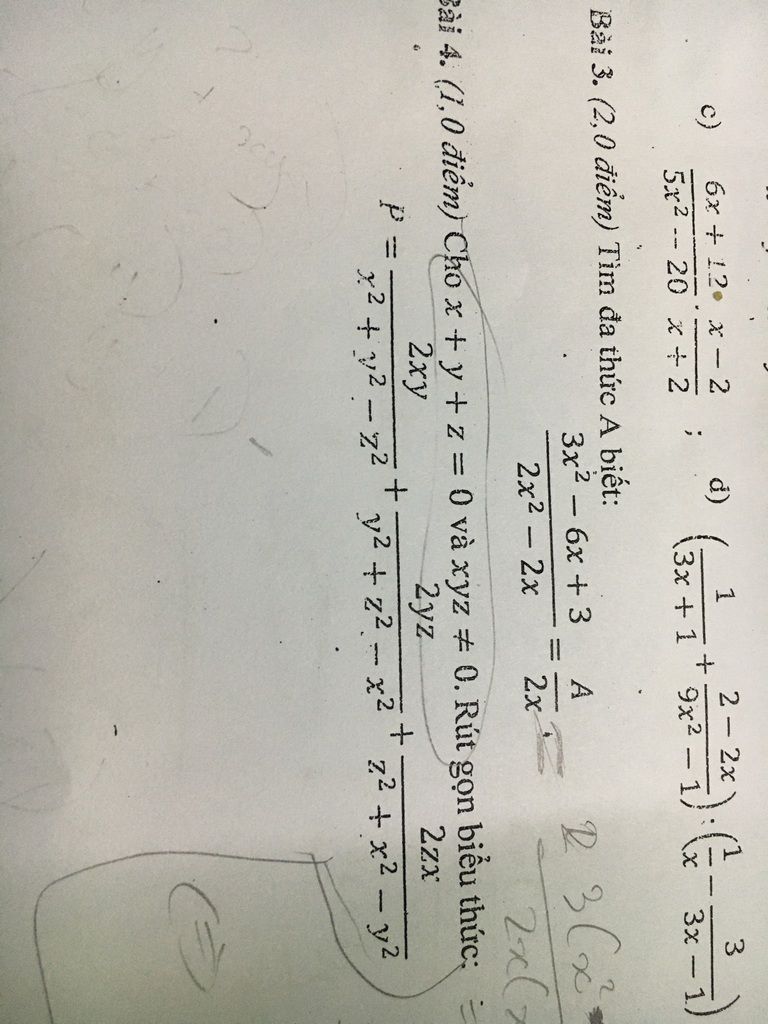 c) (6x + 12)/(5x² − 20) : (x − 2)/(x + 2) ; d) (1/(3x + 1) + (2 − 2x)/(9x² − 1)) : (1/x − 3/(3x − 1))
Bài 3. (2,0 điểm) Tìm đa thức A biết:
(3x² − 6x + 3)/(2x² − 2x) = A/2x
Bài 4. (1,0 điểm) Cho x + y + z = 0 và xyz ≠ 0. Rút gọn biểu thức:
P = 2xy/(x² + y² − z²) + 2yz/(y² + z² − x²) + 2zx/(z² + x² − y²)